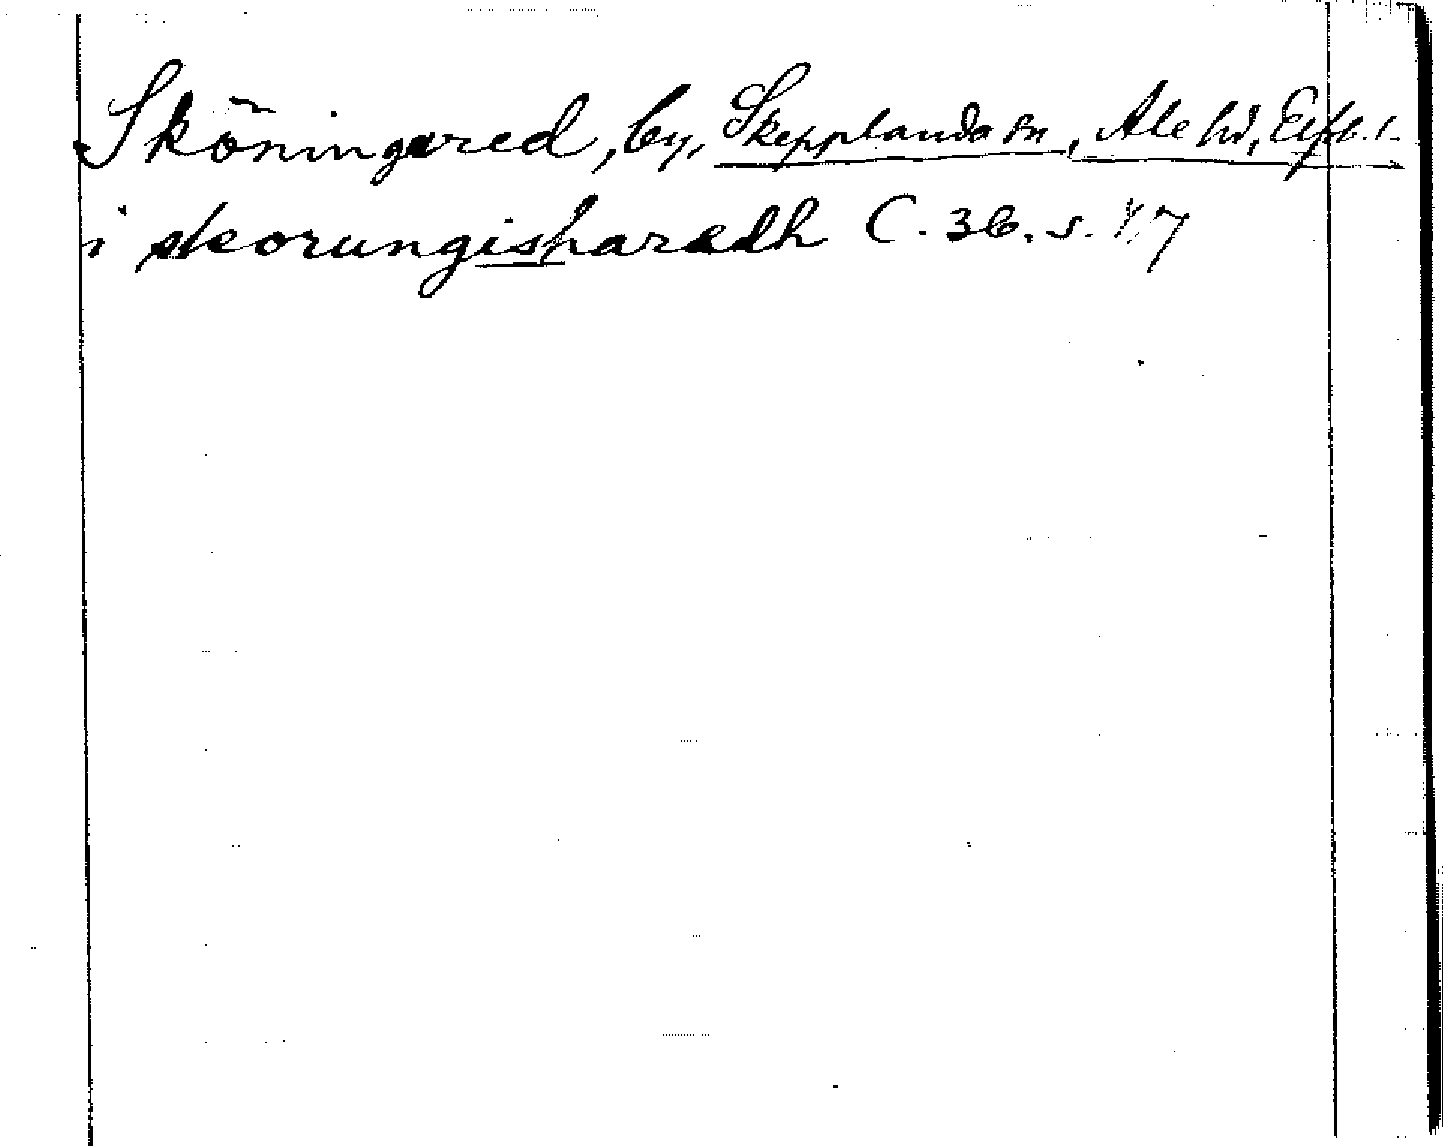 Sköningared, by, Skepplanda sn, Ale hd, Elfsb. l.
i skorungisharædh C. 36. s. 17